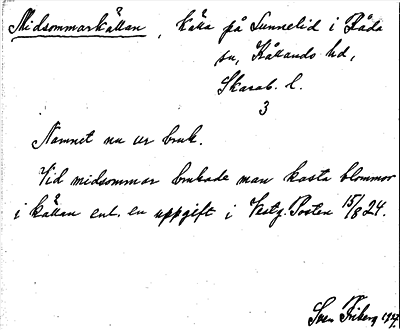 Midsommarkällan, källa på Sunnelid i Råda
sn, Kållands hd,
Skarab. l.
3
Namnet nu ur bruk.
Vid midsommar brukade man kasta blommor
i källan enl. en uppgift i Vestg. Posten 15/8 24.
Sven Friberg